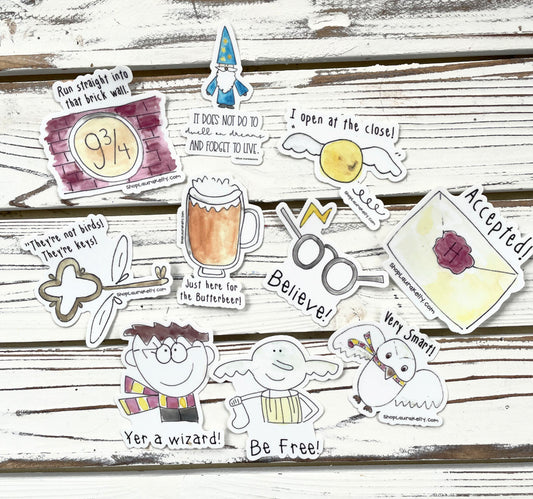 Run straight into
that brick wall.
9 3/4
ShopLauraKelly.com
IT DOES NOT DO TO
dwell on dreams
AND FORGET TO LIVE.
I open at the close!
ShopLauraKelly.com
"They're not birds!
They're keys!
ShopLauraKelly.com
Just here for
the Butterbeer!
Believe!
Accepted!
H
ShopLauraKelly.com
Yer a wizard!
Be Free!
Very Smart!
ShopLauraKelly.com